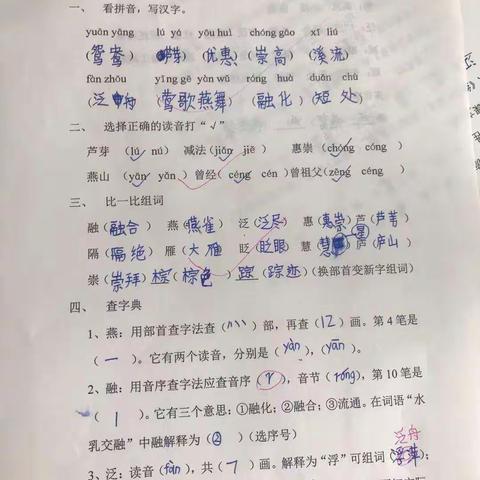 一、 看拼音，写汉字。
yuān yāng lú yá yōu huì chóng gāo xī liú
(鸳鸯) (芽) (优惠) (崇高) (溪流)
fàn zhōu yīng gē yàn wǔ róng huà duǎn chù
(泛舟) (莺歌燕舞) (融化) (短处)
二、 选择正确的读音打“√”
芦芽 (lú√ nú) 减法(jiǎn√ jiē) 惠崇 (chóng√ cóng)
燕山 (yān√ yǎn) 曾经(céng√ cén) 曾祖父(zēng√ céng)
三、 比一比组词
融(融合) 燕(燕雀) 泛(泛尽) 惠(惠崇) 芦(芦苇)
隔(隔绝) 雁(大雁) 眨(眨眼) 慧(慧星) 庐(庐山)
崇(崇拜) 棕(棕色) 踪(踪迹) (换部首变新字组词)
四、 查字典
1、燕：用部首查字法查(灬)部，再查(12)画。第4笔是
(一)。它有两个读音，分别是(yàn)，(yān)。
2、融：用音序查字法应查音序(r)，音节(róng)，第10笔是
(丨)。它有三个意思：①融化；②融合；③流通。在词语“水
乳交融”中融解释为(②)(选序号)
泛舟
3、泛：读音(fàn)，共(7)画。解释为“浮”可组词(浮萍)；